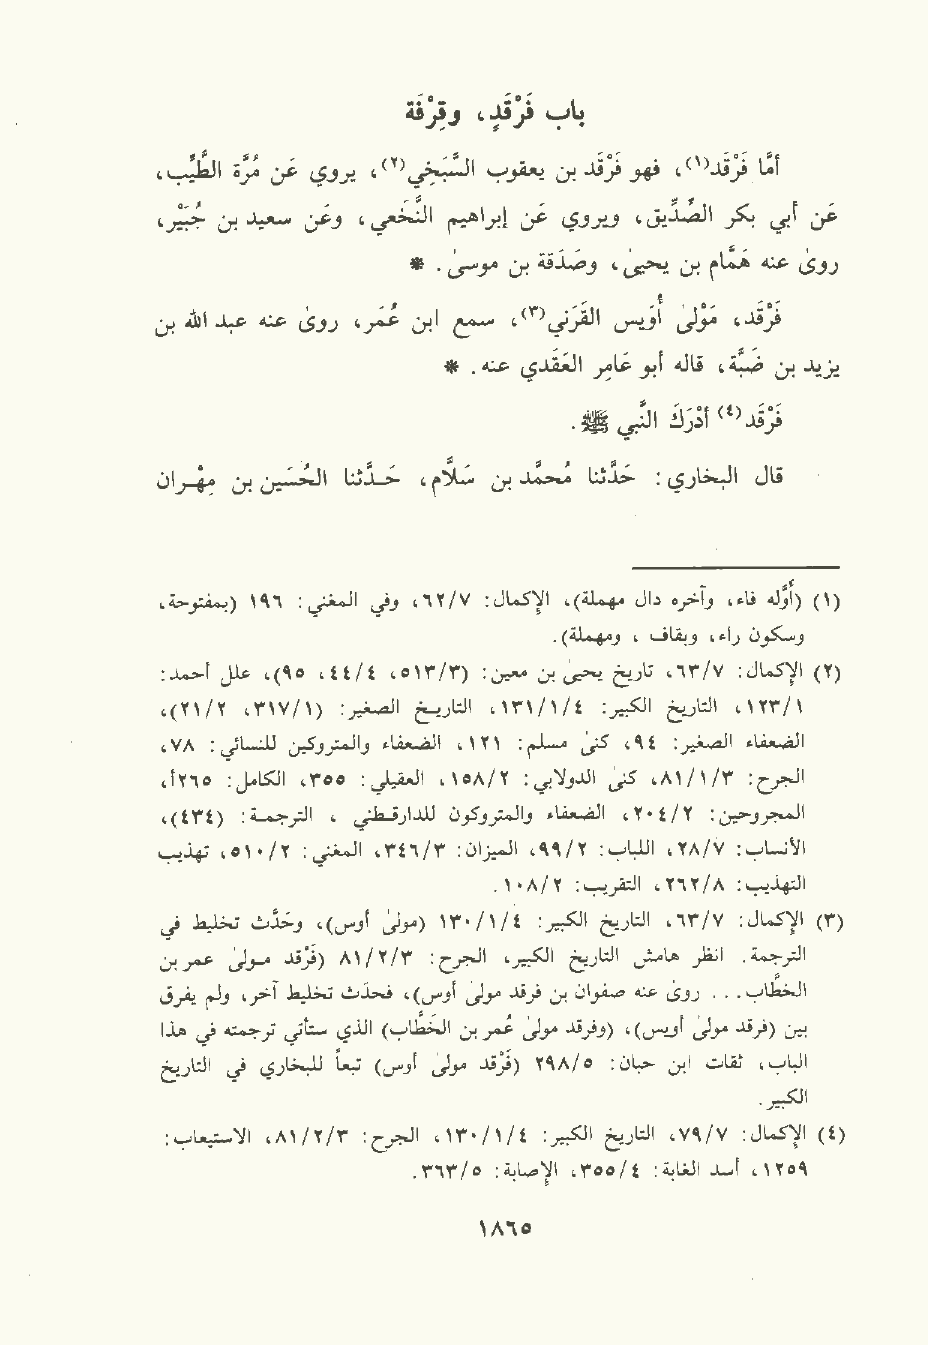 باب فَرْقَدٍ، وقِرْفَة
أمَّا فَرْقَد(١)، فهو فَرْقَد بن يعقوب السَّبَخِي(٢)، يروي عَن مُرَّة الطَّيِّب،
عَن أبي بكر الصِّدِّيق، ويروي عَن إبراهيم النَّخَعي، وعَن سعيد بن جُبَيْر،
روىٰ عنه همَّام بن يحيىٰ، وصَدَقة بن موسىٰ. *
فَرْقَد، مَوْلىٰ أُوَيس القَرَني(٣)، سمع ابن عُمَر، روىٰ عنه عبد الله بن
يزيد بن ضَبَّة، قاله أبو عَامِر العَقَدي عنه. *
فَرْقَد(٤) أدْرَكَ النَّبي ﷺ.
قال البخاري: حَدَّثنا مُحمَّد بن سَلاَّم، حَدَّثنا الحُسَين بن مِهْران
(١) (أوَّله فاء، وآخره دال مهملة)، الإكمال: ٦٢/٧، وفي المغني: ١٩٦ (بمفتوحة،
وسكون راء، وبقاف، ومهملة).
(٢) الإكمال: ٦٣/٧، تاريخ يحيىٰ بن معين: (٥١٣/٣، ٤٤/٤، ٩٥)، علل أحمد:
١٢٣/١، التاريخ الكبير: ١٣١/١/٤، التاريخ الصغير: (٣١٧/١، ٢١/٢)،
الضعفاء الصغير: ٩٤، كنىٰ مسلم: ١٢١، الضعفاء والمتروكين للنسائي: ٧٨،
الجرح: ٨١/١/٣، كنىٰ الدولابي: ١٥٨/٢، العقيلي: ٣٥٥، الكامل: ٢٦٥أ،
المجروحين: ٢٠٤/٢، الضعفاء والمتروكون للدارقطني، الترجمة: (٤٣٤)،
الأنساب: ٢٨/٧، اللباب: ٩٩/٢، الميزان: ٣٤٦/٣، المغني: ٥١٠/٢، تهذيب
التهذيب: ٢٦٢/٨، التقريب: ١٠٨/٢.
(٣) الإكمال: ٦٣/٧، التاريخ الكبير: ١٣٠/١/٤ (مولىٰ أوس)، وحَدَّث تخليط في
الترجمة. انظر هامش التاريخ الكبير، الجرح: ٨١/٢/٣ (فَرْقد مولىٰ عمر بن
الخطَّاب... روىٰ عنه صفوان بن فرقد مولىٰ أوس)، فحدث تخليط آخر، ولم يفرق
بين (فرقد مولىٰ أويس)، (وفرقد مولىٰ عُمر بن الخَطَّاب) الذي ستأتي ترجمته في هذا
الباب، ثقات ابن حبان: ٢٩٨/٥ (فَرْقد مولىٰ أوس) تبعاً للبخاري في التاريخ
الكبير.
(٤) الإكمال: ٧٩/٧، التاريخ الكبير: ١٣٠/١/٤، الجرح: ٨١/٢/٣، الاستيعاب:
١٢٥٩، أسد الغابة: ٣٥٥/٤، الإصابة: ٣٦٣/٥.
١٨٦٥